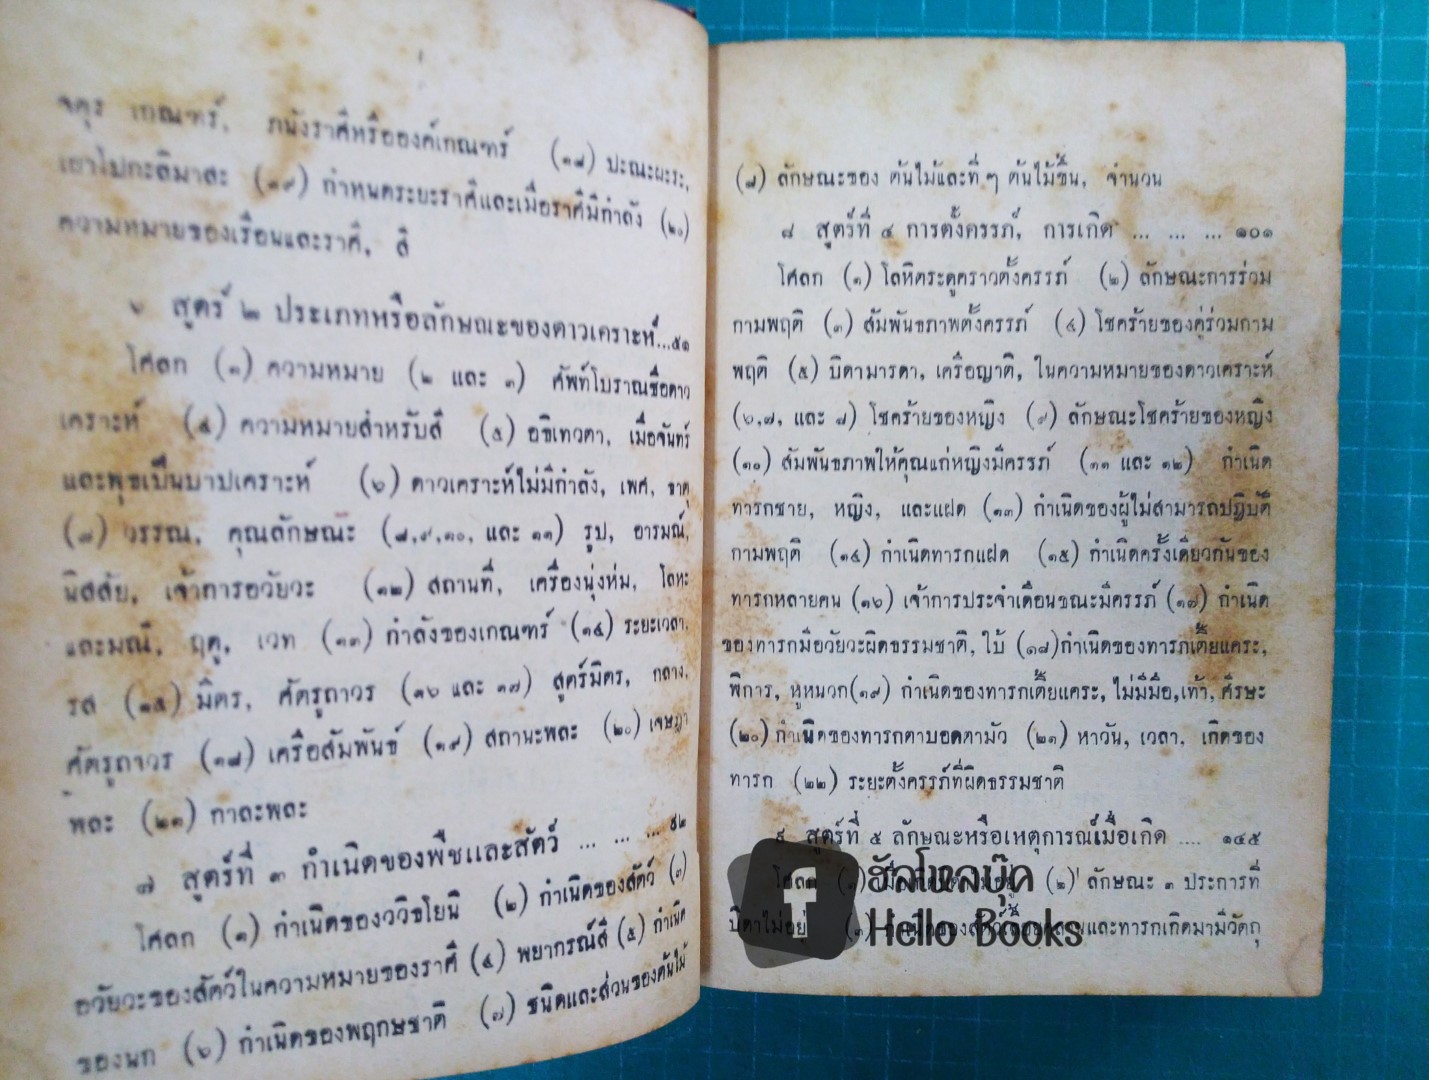 จตุร เกณฑร์, ภนังราศีหรือองค์เกณฑร์ (๑๘) ปะณะผะระ,
เอาโปกะลิมาสะ (๑๙) กำหนดระยะราศีและเมื่อราศีมีกำลัง (๒๐)
ความหมายของเรือนและราศี, สี
๖ สูตร์ ๒ ประเภทหรือลักษณะของดาวเคราะห์...๕๑
โศลก (๑) ความหมาย (๒ และ ๓) ศัพท์โบราณชื่อดาว
เคราะห์ (๔) ความหมายสำหรับสี (๕) อธิเทวดา, เมื่อจันทร์
และพุธเป็นบาปเคราะห์ (๖) ดาวเคราะห์ไม่มีกำลัง, เพศ, ธาตุ
(๗) วรรณ, คุณลักษณะ (๘,๙,๑๐, และ ๑๑) รูป, อารมณ์,
นิสสัย, เจ้าการอวัยวะ (๑๒) สถานที่, เครื่องนุ่งห่ม, โลหะ
และมณี, ฤดู, เวท (๑๓) กำลังของเกณฑร์ (๑๔) ระยะเวลา,
รส (๑๕) มิตร, ศัตรูถาวร (๑๖ และ ๑๗) สูตร์มิตร, กลาง,
ศัตรูถาวร (๑๘) เครือสัมพันธ์ (๑๙) สถานะพละ (๒๐) เจษฎา
พละ (๒๑) กาละพละ
๗ สูตร์ที่ ๓ กำเนิดของพืชและสัตว์ ... ... ... ๙๒
โศลก (๑) กำเนิดของวิวิธโยนิ (๒) กำเนิดของสัตว์ (๓)
อวัยวะของสัตว์ในความหมายของราศี (๔) พยากรณ์สี (๕) กำเนิด
ของนก (๖) กำเนิดของพฤกษชาติ (๗) ชนิดและส่วนของต้นไม้
(๘) ลักษณะของ ต้นไม้และที่ ๆ ต้นไม้ขึ้น, จำนวน
๘ สูตร์ที่ ๔ การตั้งครรภ์, การเกิด ... ... ... ๑๐๑
โศลก (๑) โลหิตระดูคราวตั้งครรภ์ (๒) ลักษณะการร่วม
กามพฤติ (๓) สัมพันธภาพตั้งครรภ์ (๔) โชคร้ายของคู่ร่วมกาม
พฤติ (๕) บิดามารดา, เครือญาติ, ในความหมายของดาวเคราะห์
(๖,๗, และ ๘) โชคร้ายของหญิง (๙) ลักษณะโชคร้ายของหญิง
(๑๐) สัมพันธภาพให้คุณแก่หญิงมีครรภ์ (๑๑ และ ๑๒) กำเนิด
ทารกชาย, หญิง, และแฝด (๑๓) กำเนิดของผู้ไม่สามารถปฏิบัติ
กามพฤติ (๑๔) กำเนิดทารกแฝด (๑๕) กำเนิดครั้งเดียวกันของ
ทารกหลายคน (๑๖) เจ้าการประจำเดือนขณะมีครรภ์ (๑๗) กำเนิด
ของทารกมีอวัยวะผิดธรรมชาติ, ใบ้ (๑๘)กำเนิดของทารกเตี้ยแคระ,
พิการ, หูหนวก(๑๙) กำเนิดของทารกเตี้ยแคระ, ไม่มีมือ,เท้า, ศีรษะ
(๒๐) กำเนิดของทารกตาบอดตามัว (๒๑) หาวัน, เวลา, เกิดของ
ทารก (๒๒) ระยะตั้งครรภ์ที่ผิดธรรมชาติ
๙ สูตร์ที่ ๕ ลักษณะหรือเหตุการณ์เมื่อเกิด .... ๑๔๕
โศลก (๑) (๒) ลักษณะ ๓ ประการที่
บิดาไม่อยู่ (๓) และทารกเกิดมามีวัตถุ
ฮัลโหลบุ๊ค
Hello Books